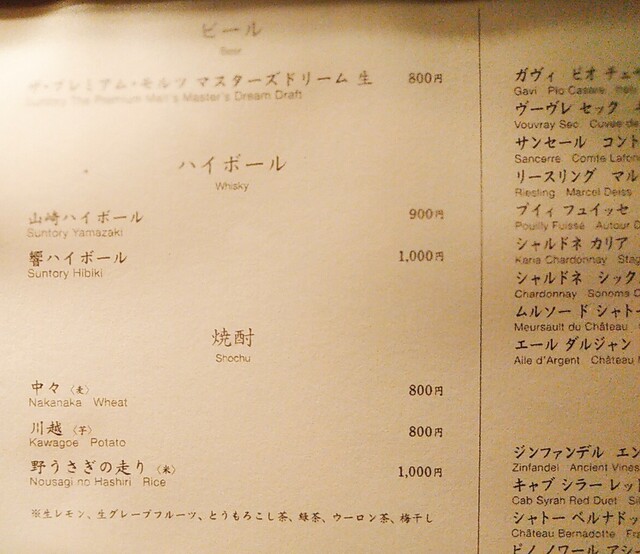 ビール
Beer
ザ・プレミアム・モルツ マスターズドリーム 生 800円
Suntory The Premium Malt's Master's Dream Draft
ハイボール
Whisky
山崎ハイボール 900円
Suntory Yamazaki
響ハイボール 1,000円
Suntory Hibiki
焼酎
Shochu
中々〈麦〉 800円
Nakanaka Wheat
川越〈芋〉 800円
Kawagoe Potato
野うさぎの走り〈米〉 1,000円
Nousagi no Hashiri Rice
※生レモン、生グレープフルーツ、とうもろこし茶、緑茶、ウーロン茶、梅干し
ガヴィ ピオ チェザ
Gavi Pio Cesare
ヴーヴレ セック
Vouvray Sec Cuvée de
サンセール コント
Sancerre Comte Lafon
リースリング マル
Riesling Marcel Deiss
プイィ フュイッセ
Pouilly Fuissé Autour D
シャルドネ カリア
Karia Chardonnay Stag
シャルドネ シック
Chardonnay Sonoma C
ムルソー ド シャトー
Meursault du Château
エール ダルジャン
Aile d'Argent Château
ジンファンデル エン
Zinfandel Ancient Vines
キャブ シラー レッド
Cab Syrah Red Duet
シャトー ベルナドッ
Château Bernadotte
ピノ ノワール